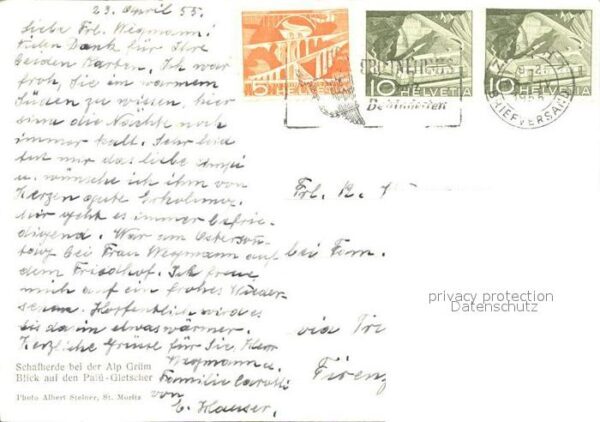 23. April 55.
Liebe Frl. Wegmann!
Vielen Dank für Ihre
beiden Karten. Ich war
froh, Sie im warmen
Süden zu wissen, hier
sind die Nächte noch
immer kalt. Sehr leid
tut mir das liebe
u. wünsche ich ihm von
Herzen gute Erholung.
Mir geht es immer befrie-
digend. War am Osterson-
tag bei Frau Wegmann auf
dem Friedhof. Ich freue
mich auf ein frohes Wieder-
sehen. Hoffentlich wird es
bis da in etwas wärmer.
Herzliche Grüsse für Sie, Herr
Wegmann u.
Familie
von
E. Hauser.
Schafherde bei der Alp Grüm
Blick auf den Palü-Gletscher
Photo Albert Steiner, St. Moritz
5 HELVETIA
10 HELVETIA
10 HELVETIA
BRIEFVERSAND
Frl.
bei Fam.
via
Firen
privacy protection
Datenschutz